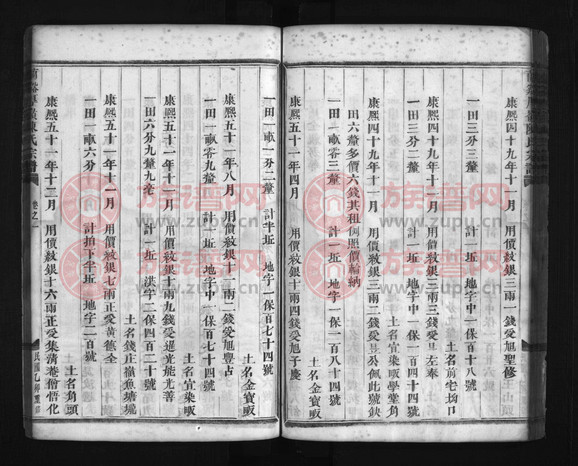 康熙四十九年十一月　用價紋銀三兩一錢受旭聖修
一田三分三釐　計一坵　地字中一保一百八十八號
土名前宅坳口
康熙四十九年十一月　用價紋銀三兩三錢受旦左奉
一田三分二釐　計一坵　地字中一保一百四十四號
土名宜染畈學堂角
康熙四十九年十一月　用價紋銀三兩二錢受旦公佩此號缺
六釐多價六錢其租例照價輪納
一田一畝零九釐　計一坵　地字中一保一百八十四號
土名金寶畈
康熙五十一年四月　用價紋銀十兩四錢受旭子慶
一田一畝一分二釐　計半坵　地字一保百七十四號
土名金寶畈
康熙五十一年八月　用價紋銀十一兩二錢受旭豐占
一田一畝零九釐　計一坵　地字中一保百七十四號
土名宜染畈
康熙五十一年十一月　用價紋銀十兩九錢受暹光能光善
一田六分九釐九毫　計一坵　漢字二保四百二十號
土名錢正嶺魚塘壠
康熙五十一年十一月　用價紋銀七兩正受黃德全
一田一畝六分　計拍下半坵　地字二百號
土名角頭
康熙五十一年十二月　用價紋銀十六兩正受集蒲菴僧悟化
卷之一
族谱网
www.zupu.cn